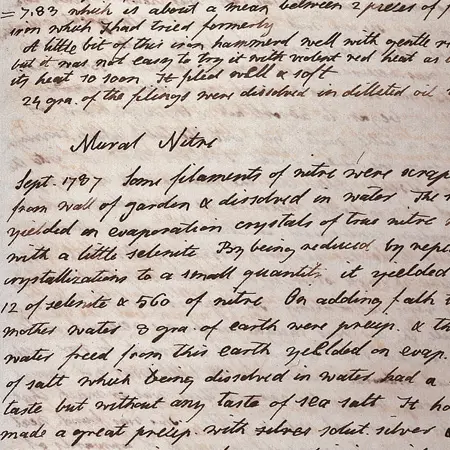 = 7,83 which is about a mean between 2 pieces of
iron which I had tried formerly
A little bit of this iron hammerd well with gentle
but it was not easy to try it with violent red heat as
its heat so soon It plied well & soft
24 gra. of the filings were dissolved in dilluted oil
Mural Nitre
Sept. 1787 Some filaments of nitre were scrap
from wall of garden & dissolved in water The
yielded on evaporation crystals of true nitre
with a little selenite By being reduced by
crystallizations to a small quantity it yielded
12 of selenite & 560 of nitre On adding
mother water 8 gra. of earth were precip. & th
water freed from this earth yeilded on evap.
of salt which being dissolved in water had a
taste but without any taste of sea salt It
made a great precip. with silver solut. silver